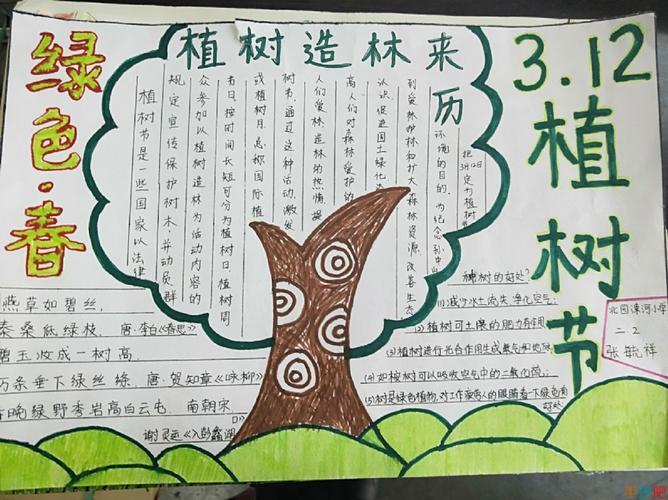 绿色·春
植树造林来历
3.12植树节
植树节是一些国家以法律
规定宣传保护树木,并动员群
众参加以植树造林为活动内容的
节日。按时间长短可分为植树日、植树周
或植树月,总称国际植
树节。通过这种活动,激发
人们爱林造林的热情、提
高人们对森林爱护的
认识,促进国土绿化,
到爱林护林和扩大森林资源、改善生态
环境的目的。为纪念孙中
把3月12日定为植树
燕草如碧丝,
秦桑低绿枝。唐·李白《春思》
碧玉妆成一树高
万条垂下绿丝绦。唐·贺知章《咏柳》
晚绿野秀岩高白云屯。南朝宋
谢灵运《入彭蠡湖
种树的好处?
(1)减少水土流失,净化空气;
(2)植树可土壤的肥力有作用
(3)植树进行光合作用生成氧气和
(4)如桉树可以吸收空气中的二氧化
(5)树是绿色植物,对工作疲劳人的眼睛看下绿色有
好处
北园漯河小学
二2
张毓祥